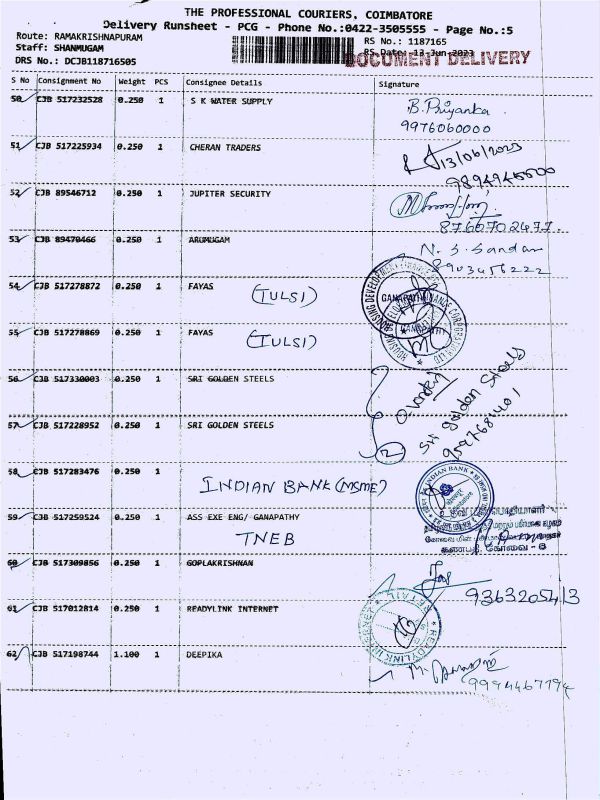 THE PROFESSIONAL COURIERS, COIMBATORE
Delivery Runsheet - PCG - Phone No.:0422-3505555 - Page No.:5
Route: RAMAKRISHNAPURAM
RS No.: 1187165
Staff: SHANMUGAM
RS Date: 13-Jun-2023
DOCUMENT DELIVERY
DRS No.: DCJB118716505
S No Consignment No Weight PCS Consignee Details Signature
50 CJB 517232528 0.250 1 S K WATER SUPPLY B. Priyanka
9976060000
51 CJB 517225934 0.250 1 CHERAN TRADERS 13/06/2023
52 CJB 89546712 0.250 1 JUPITER SECURITY
8760702477
53 CJB 89470466 0.250 1 ARUMUGAM N. S. Sandar
8903456222
54 CJB 517278872 0.250 1 FAYAS
(TULSI)
HOUSING DEVELOPMENT FINANCE CORPORATION LTD
GANAPATHY
55 CJB 517278869 0.250 1 FAYAS
(TULSI)
56 CJB 517330003 0.250 1 SRI GOLDEN STEELS
Sri Golden Steels
57 CJB 517228952 0.250 1 SRI GOLDEN STEELS
2
58 CJB 517283476 0.250 1
INDIAN BANK (MSME)
INDIAN BANK
59 CJB 517259524 0.250 1 ASS EXE ENG/ GANAPATHY
TNEB
கணபதி, கோவை - 6
60 CJB 517309856 0.250 1 GOPLAKRISHNAN
9363205413
61 CJB 517012814 0.250 1 READYLINK INTERNET
READYLINK INTERNET
RETAIL
62 CJB 517198744 1.100 1 DEEPIKA
9994467194